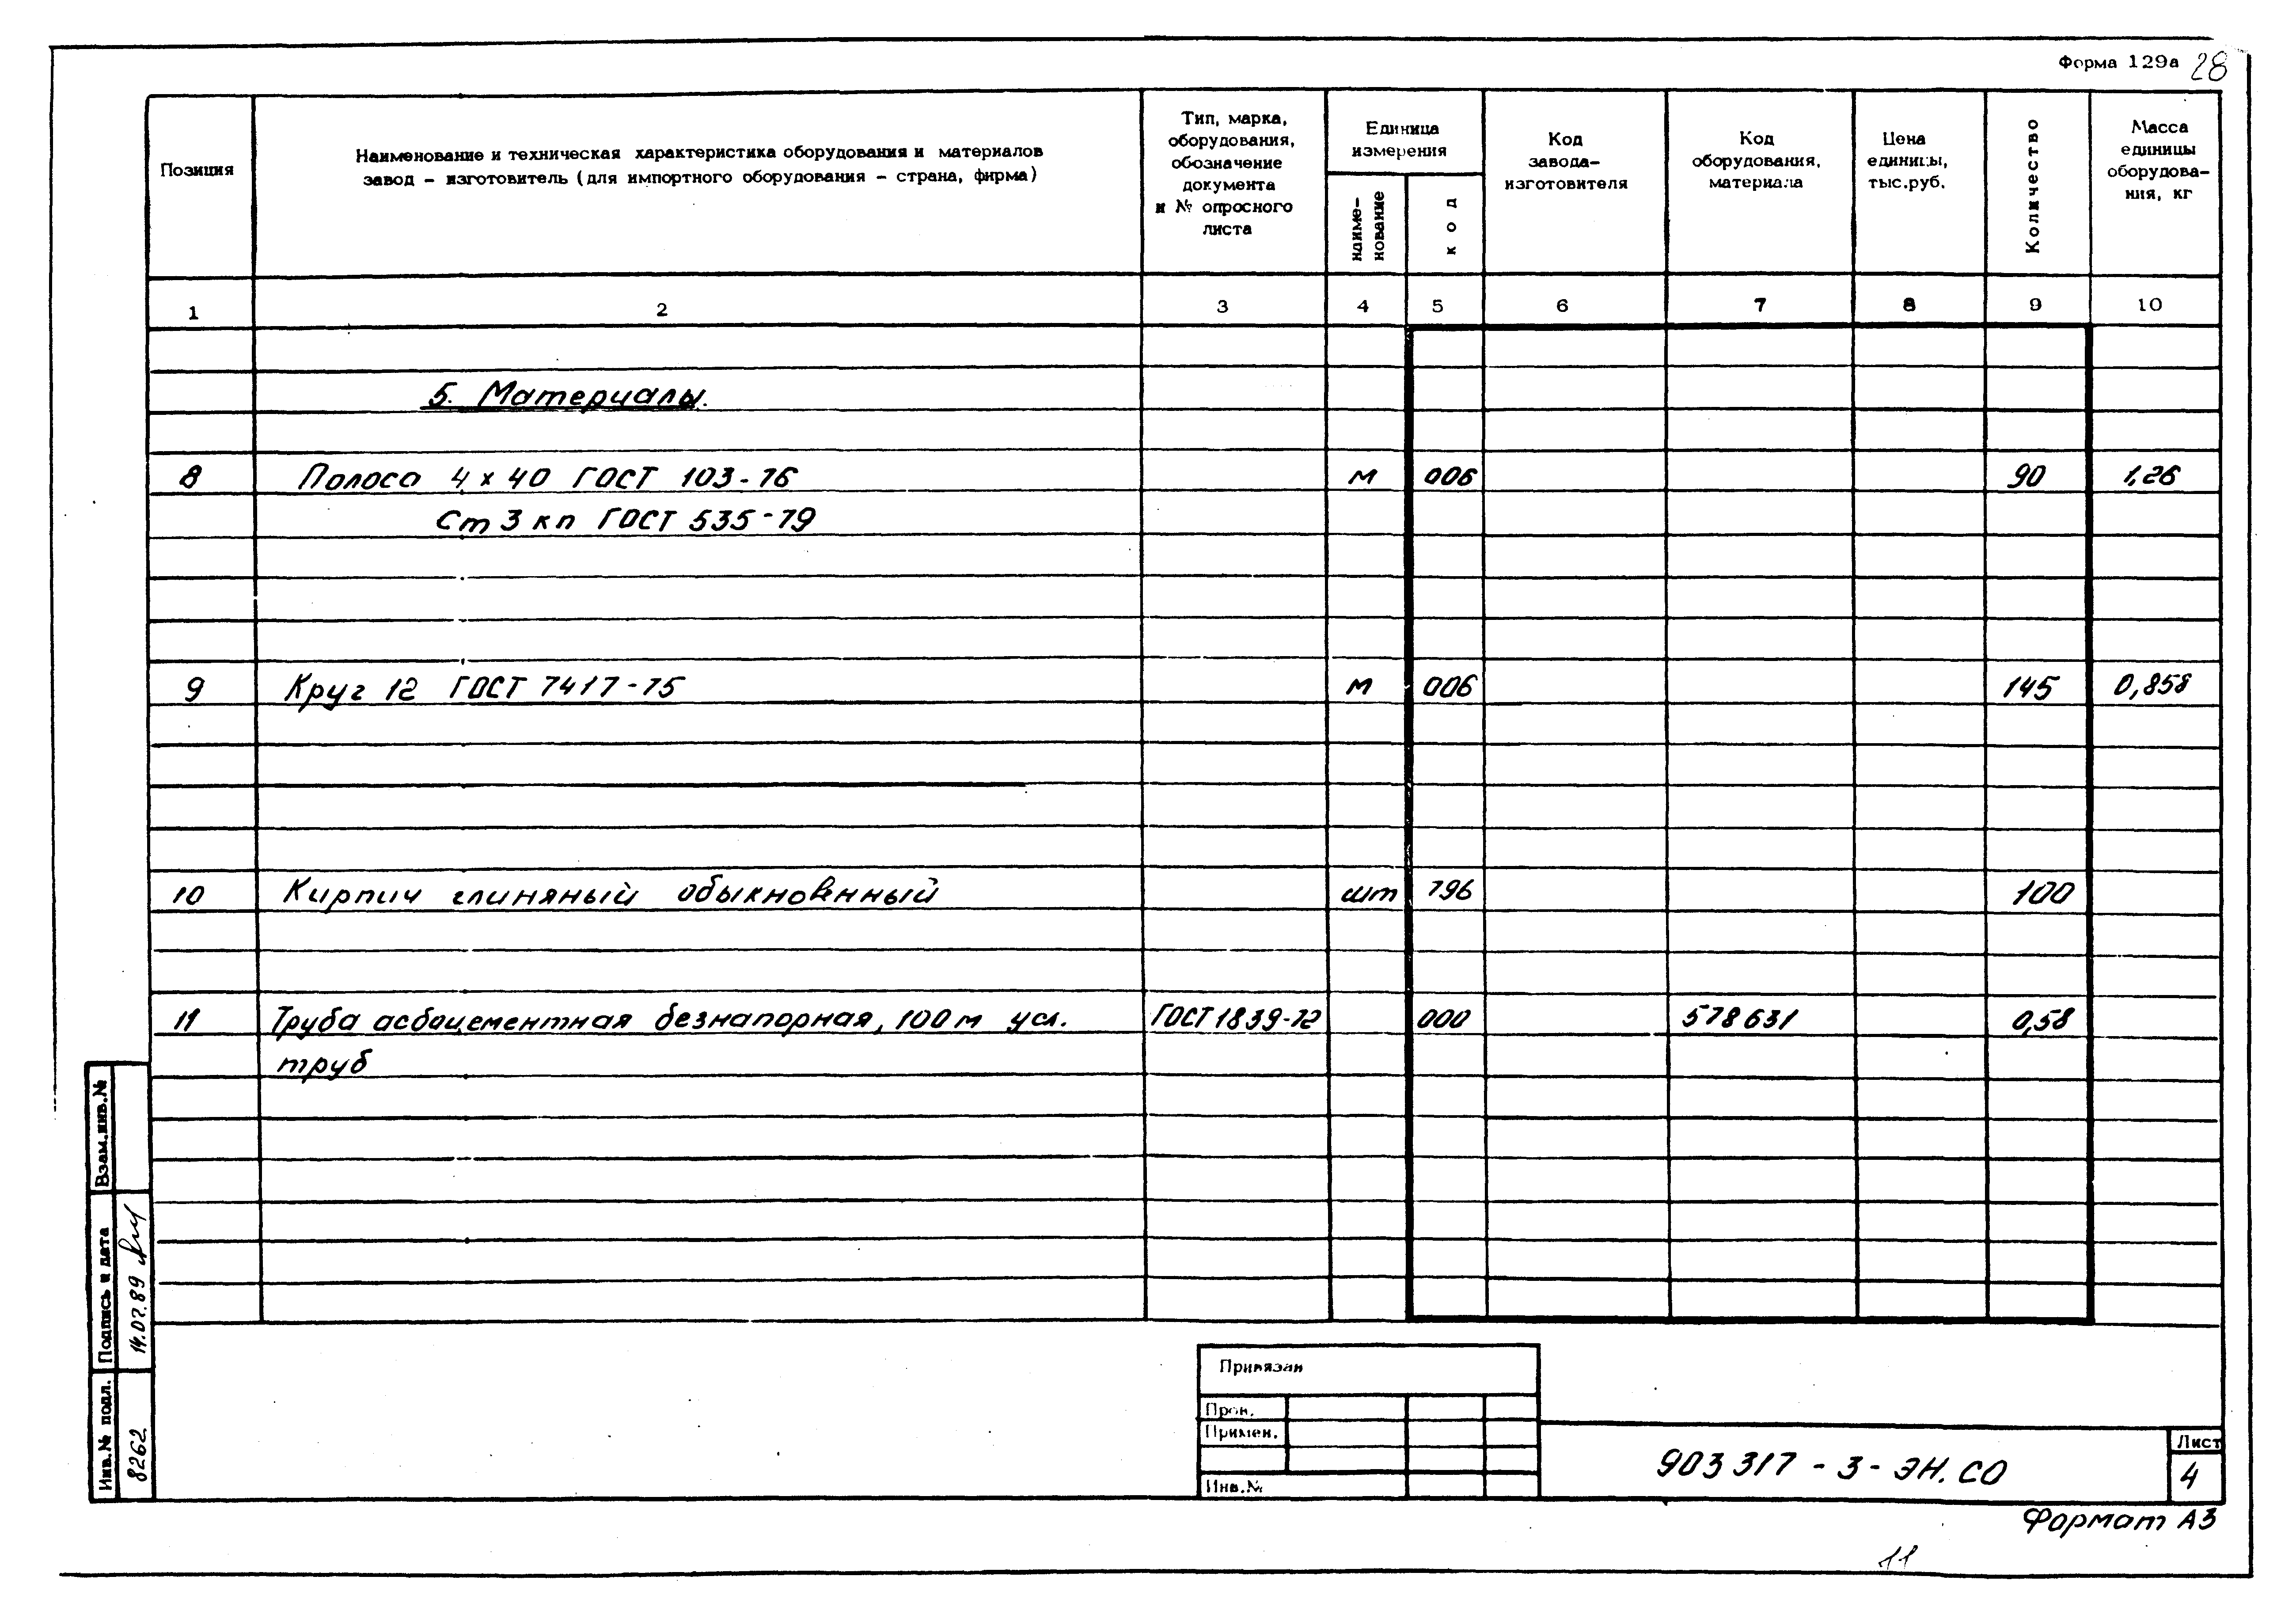 Форма 129а 28
Позиция
Наименование и техническая характеристика оборудования и материалов
завод – изготовитель (для импортного оборудования – страна, фирма)
Тип, марка,
оборудования,
обозначение
документа
и № опросного
листа
Единица
измерения
наиме-
нование
код
Код
завода-
изготовителя
Код
оборудования,
материала
Цена
единицы,
тыс.руб.
Количество
Масса
единицы
оборудова-
ния, кг
1 2 3 4 5 6 7 8 9 10
5. Материалы.
8 Полоса 4х40 ГОСТ 103-76 м 006 90 1,26
Ст 3 кп ГОСТ 535-79
9 Круг 12 ГОСТ 7417-75 м 006 145 0,858
10 Кирпич глиняный обыкновнный шт 796 100
11 Труба асбоцементная безнапорная, 100м усл. ГОСТ 1839-72 000 578631 0,58
труб
Взам.инв.№
Подпись и дата
14.02.89
Инв.№ подл.
8262
Привязан
Пров.
Примен.
Инв.№
903 317 - 3 - ЭН.СО
Лист
4
Формат А3
11